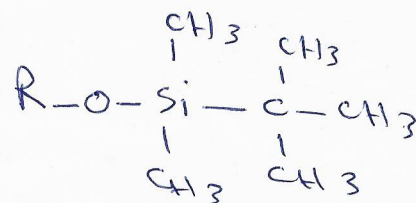 CH3 CH3
R-O-Si-C-CH3
CH3 CH3